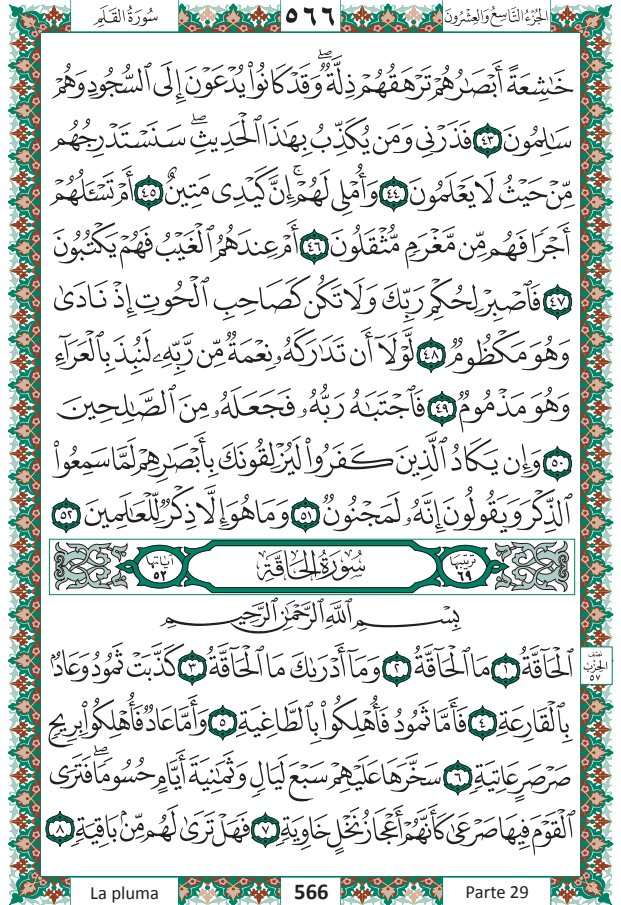 الجُزْءُ التَّاسِعُ وَالعِشْرُونَ ٥٦٦ سُورَةُ القَلَمِ
خَٰشِعَةً أَبۡصَٰرُهُمۡ تَرۡهَقُهُمۡ ذِلَّةٞۖ وَقَدۡ كَانُواْ يُدۡعَوۡنَ إِلَى ٱلسُّجُودِ وَهُمۡ
سَٰلِمُونَ ٤٣ فَذَرۡنِي وَمَن يُكَذِّبُ بِهَٰذَا ٱلۡحَدِيثِۖ سَنَسۡتَدۡرِجُهُم
مِّنۡ حَيۡثُ لَا يَعۡلَمُونَ ٤٤ وَأُمۡلِي لَهُمۡۚ إِنَّ كَيۡدِي مَتِينٌ ٤٥ أَمۡ تَسۡـَٔلُهُمۡ
أَجۡرٗا فَهُم مِّن مَّغۡرَمٖ مُّثۡقَلُونَ ٤٦ أَمۡ عِندَهُمُ ٱلۡغَيۡبُ فَهُمۡ يَكۡتُبُونَ
٤٧ فَٱصۡبِرۡ لِحُكۡمِ رَبِّكَ وَلَا تَكُن كَصَاحِبِ ٱلۡحُوتِ إِذۡ نَادَىٰ
وَهُوَ مَكۡظُومٞ ٤٨ لَّوۡلَآ أَن تَدَٰرَكَهُۥ نِعۡمَةٞ مِّن رَّبِّهِۦ لَنُبِذَ بِٱلۡعَرَآءِ
وَهُوَ مَذۡمُومٞ ٤٩ فَٱجۡتَبَٰهُ رَبُّهُۥ فَجَعَلَهُۥ مِنَ ٱلصَّٰلِحِينَ
٥٠ وَإِن يَكَادُ ٱلَّذِينَ كَفَرُواْ لَيُزۡلِقُونَكَ بِأَبۡصَٰرِهِمۡ لَمَّا سَمِعُواْ
ٱلذِّكۡرَ وَيَقُولُونَ إِنَّهُۥ لَمَجۡنُونٞ ٥١ وَمَا هُوَ إِلَّا ذِكۡرٞ لِّلۡعَٰلَمِينَ ٥٢
ترتيبها ٦٩ سُورَةُ الحَاقَّةِ آياتها ٥٢
بِسۡمِ ٱللَّهِ ٱلرَّحۡمَٰنِ ٱلرَّحِيمِ
ٱلۡحَآقَّةُ ١ مَا ٱلۡحَآقَّةُ ٢ وَمَآ أَدۡرَىٰكَ مَا ٱلۡحَآقَّةُ ٣ كَذَّبَتۡ ثَمُودُ وَعَادُۢ
نصف الحزب ٥٧
بِٱلۡقَارِعَةِ ٤ فَأَمَّا ثَمُودُ فَأُهۡلِكُواْ بِٱلطَّاغِيَةِ ٥ وَأَمَّا عَادٞ فَأُهۡلِكُواْ بِرِيحٖ
صَرۡصَرٍ عَاتِيَةٖ ٦ سَخَّرَهَا عَلَيۡهِمۡ سَبۡعَ لَيَالٖ وَثَمَٰنِيَةَ أَيَّامٍ حُسُومٗاۖ فَتَرَى
ٱلۡقَوۡمَ فِيهَا صَرۡعَىٰ كَأَنَّهُمۡ أَعۡجَازُ نَخۡلٍ خَاوِيَةٖ ٧ فَهَلۡ تَرَىٰ لَهُم مِّنۢ بَاقِيَةٖ ٨
La pluma 566 Parte 29